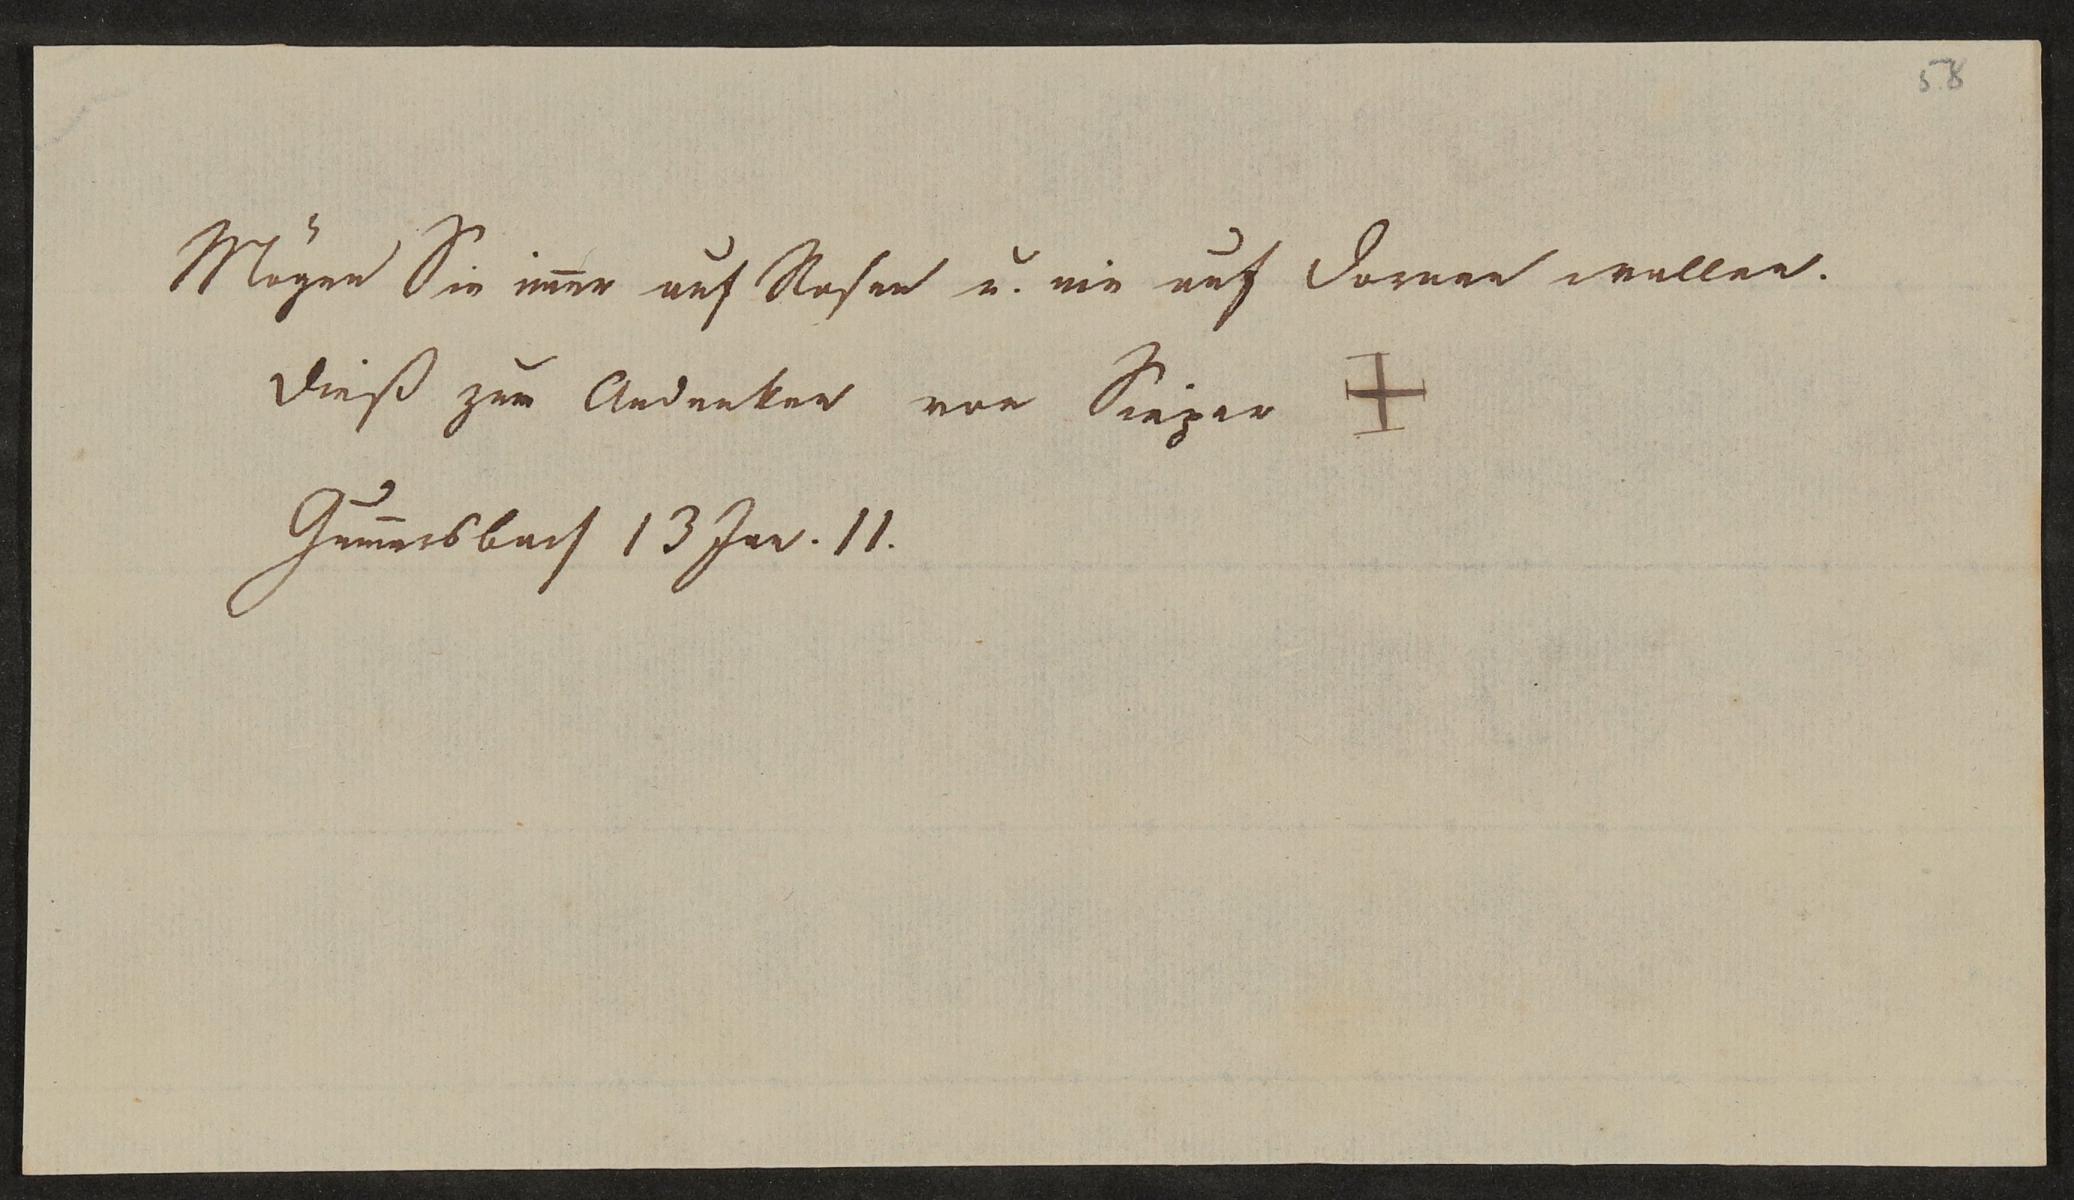 58
Mögen Sie im̅er auf Rosen u. nie auf Dornen wallen.
Dieß zum Andenken von Sieper
Gum̅ersbach 13 Jan. 11.